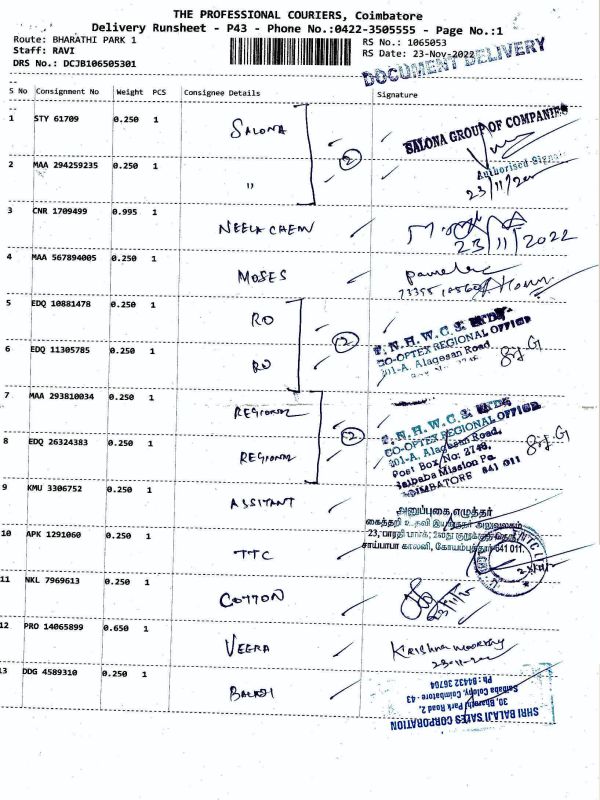 THE PROFESSIONAL COURIERS, Coimbatore
Delivery Runsheet - P43 - Phone No.:0422-3505555 - Page No.:1
Route: BHARATHI PARK 1
RS No.: 1065053
Staff: RAVI
RS Date: 23-Nov-2022
DRS No.: DCJB106505301
DOCUMENT DELIVERY
S No Consignment No Weight PCS Consignee Details Signature
1 STY 61709 0.250 1 SALONA
SALONA GROUP OF COMPANIES
Authorised
2 MAA 294259235 0.250 1 "
2
23/11/
3 CNR 1709499 0.995 1 NEELA CHEM
23/11/2022
4 MAA 567894005 0.250 1 MOSES
5 EDQ 10881478 0.250 1 RO
2
T.N.H.W.C.S
CO-OPTEX REGIONAL OFFICE
201-A, Alagesan Road
6 EDQ 11305785 0.250 1 RO
7 MAA 293810034 0.250 1 REGIONAL
2
T.N.H.W.C.S
CO-OPTEX REGIONAL OFFICE
201-A, Alagesan Road,
Post Box No: 2748,
Saibaba Mission Po
COIMBATORE 641 011
8 EDQ 26324383 0.250 1 REGIONAL
9 KMU 3306752 0.250 1 ASSITANT
அனுப்புகை எழுத்தர்
கைத்தறி உதவி இயக்குநர் அலுவலகம்
23, பாரதி பார்க்,
சாய்பாபா காலனி, கோயம்புத்தூர்-641 011.
10 APK 1291060 0.250 1 TTC
11 NKL 7969613 0.250 1 COTTON
12 PRO 14065899 0.650 1 VEERA
Krishnamoorthy
13 DDG 4589310 0.250 1 BALAJI
SHRI BALAJI SALES CORPORATION
30, Bharathi Park Road 2,
Saibaba Colony, Coimbatore - 43
Ph : 94432 36704